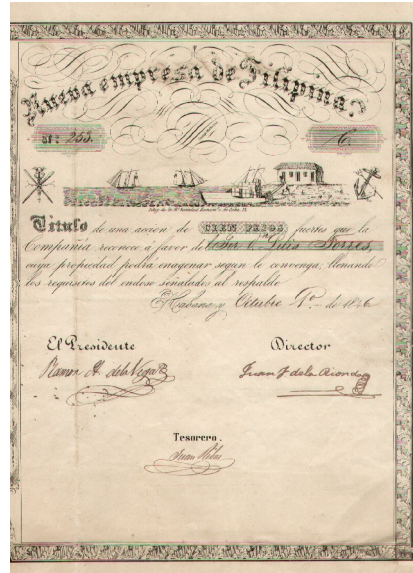 Nueva empresa de Filipina.
Nº 253.
Título de una acción de CIEN PESOS fuertes que la
Compañía reconoce á favor de Luis Torres,
cuya propiedad podrá enagenar segun le convenga, llenando
los requisitos del endoso señalados al respaldo.
Habana, y Octubre 1º de 1846
El Presidente
Director
Ramon A. de la Vega
Juan J. de la
Tesorero.
Juan